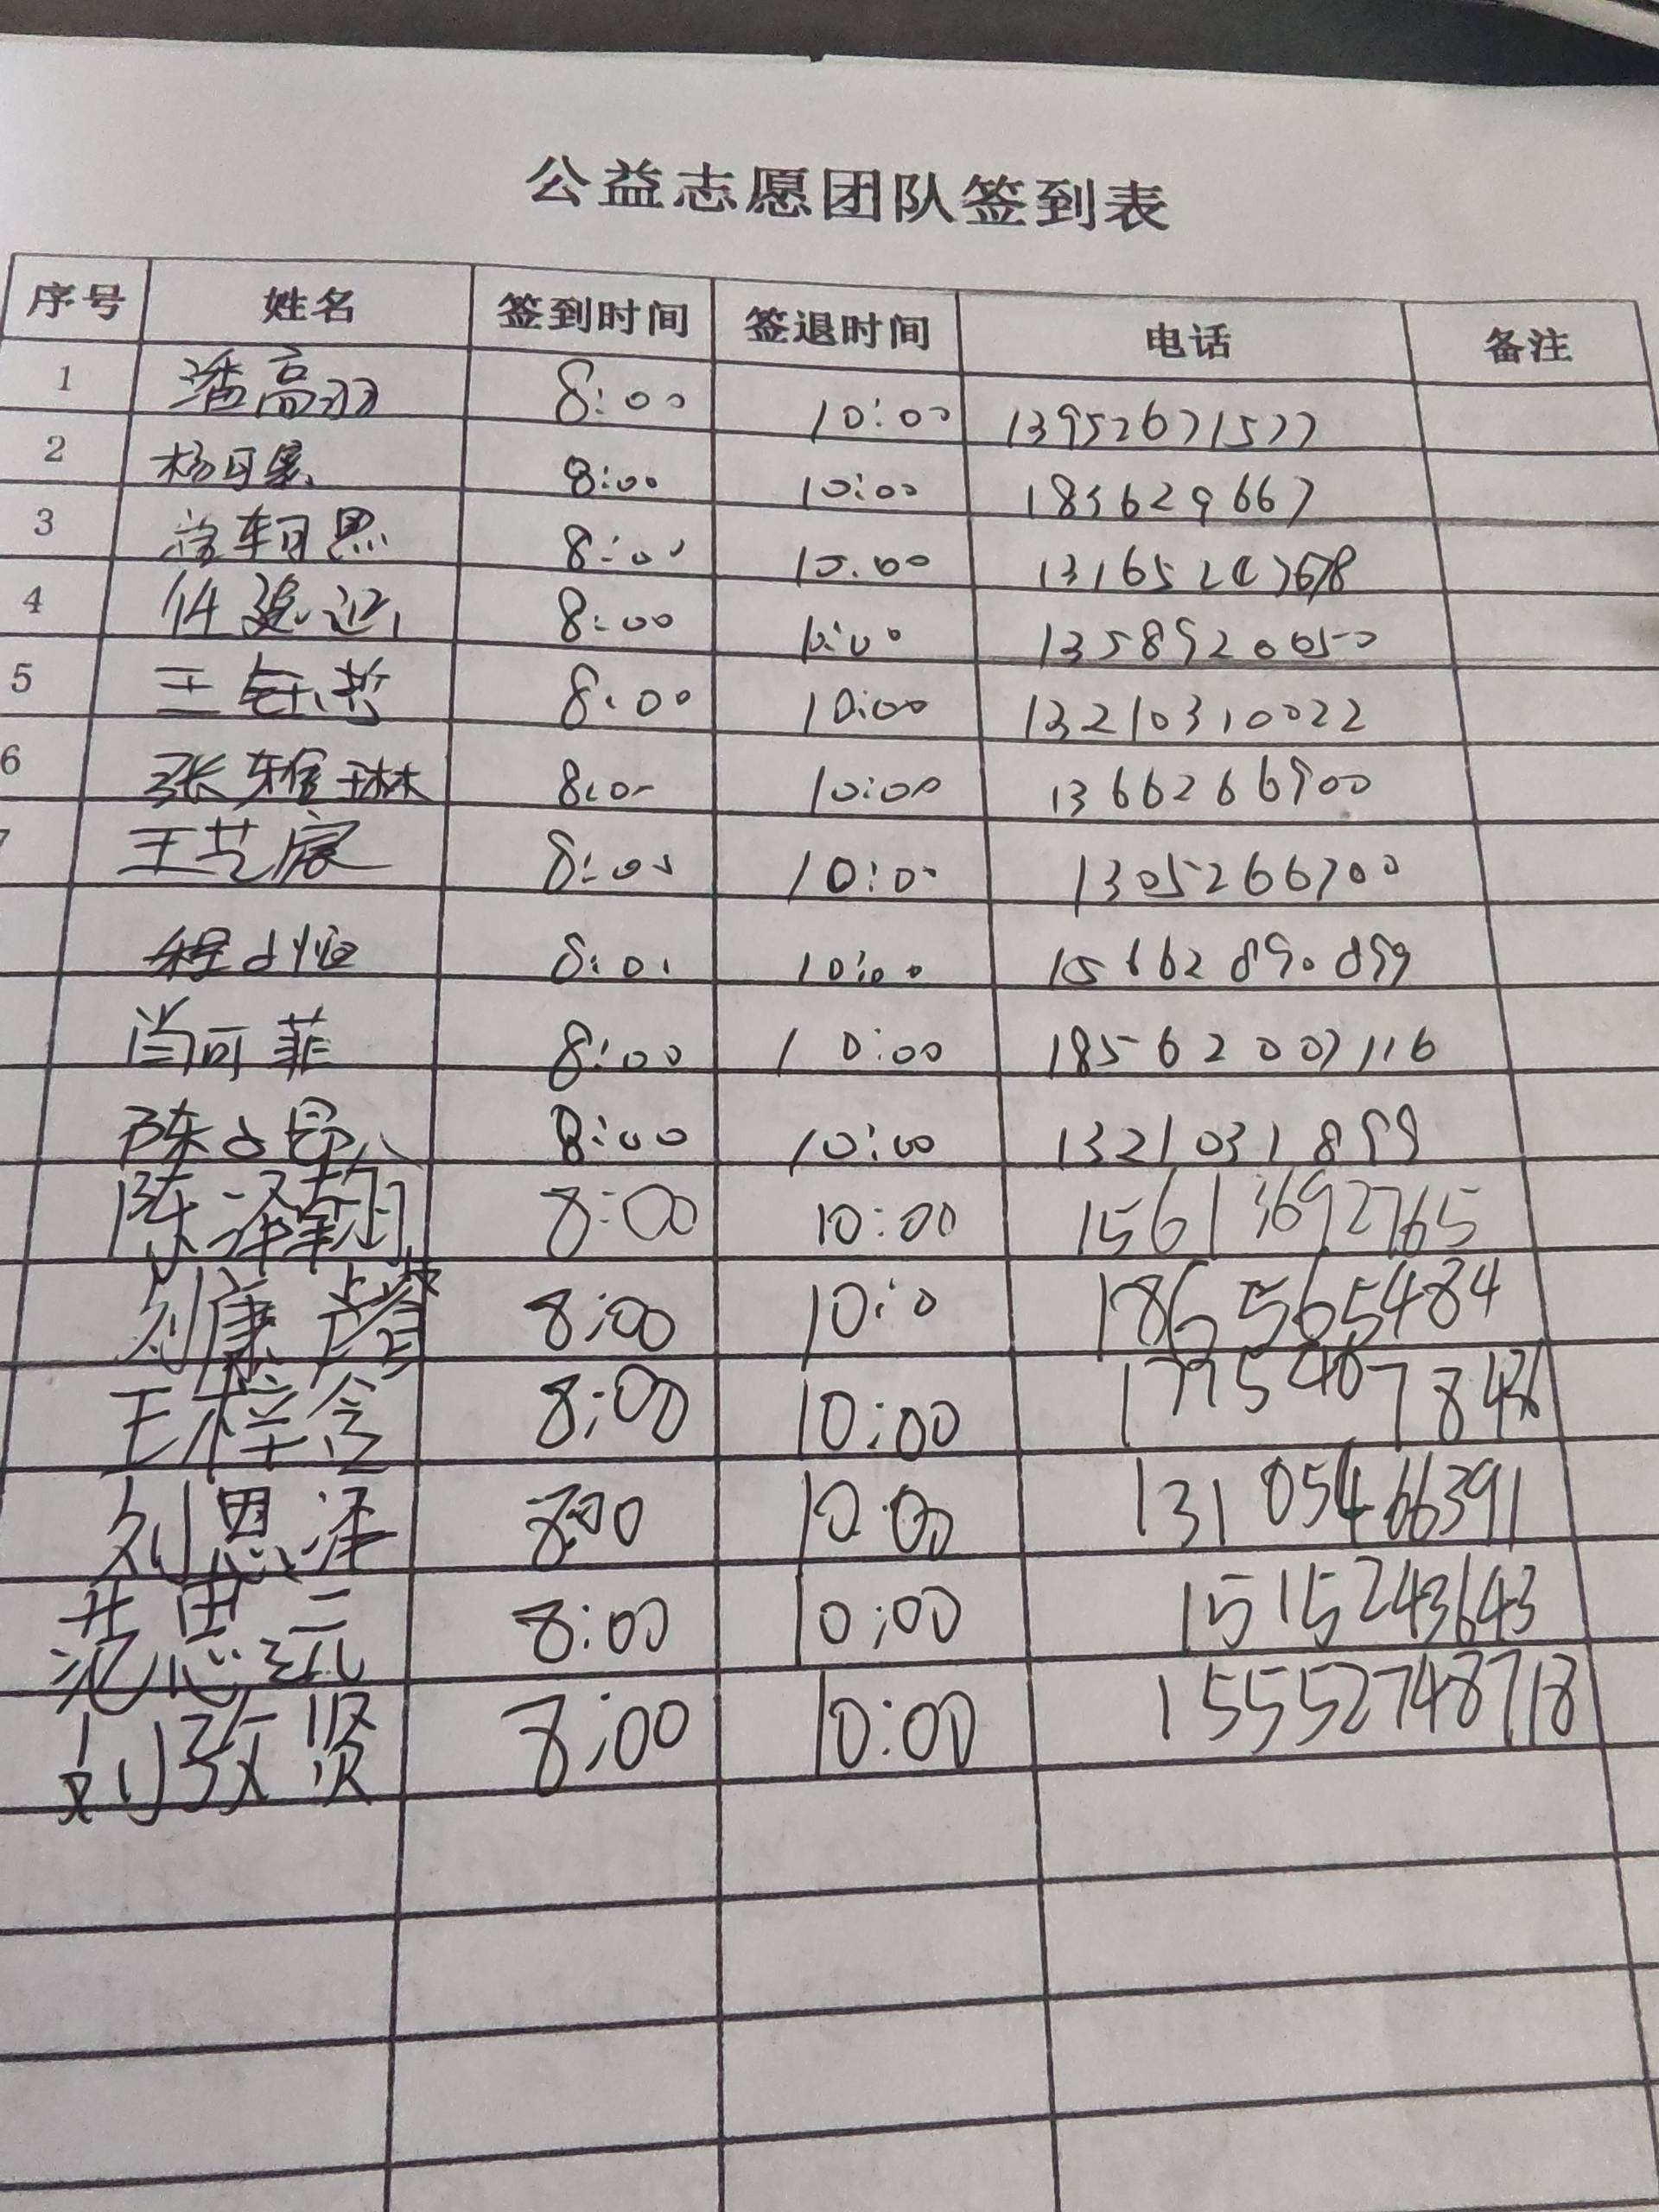 公益志愿团队签到表
序号 姓名 签到时间 签退时间 电话 备注
1 潘高羽 8:00 10:00 13952671577
2 杨可 8:00 10:00 183629667
3 8:00 10:00
4 8:00 10:00 13589200050
5 王钰哲 8:00 10:00 13210310022
6 张雅琳 8:00 10:00 13662666900
王芝宸 8:00 10:00 13052666700
程小恒 8:00 10:00 15662890899
肖可菲 8:00 10:00 18562007116
陈小昂 8:00 10:00 1321031899
陈泽翰 8:00 10:00 15613692765
刘康 8:00 10:0 18656565484
王梓含 8:00 10:00
刘恩泽 8:00 10:00 13105466391
范思琉 8:00 10:00 15152243643
刘致贤 8:00 10:00 15552748718